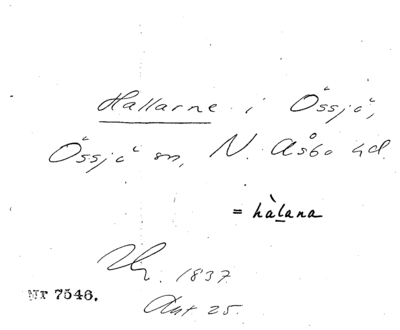 Hallarne i Össjö,
Össjö sn, N. Åsbo hd.
= hàlana
1837
Nr 7546.
25.